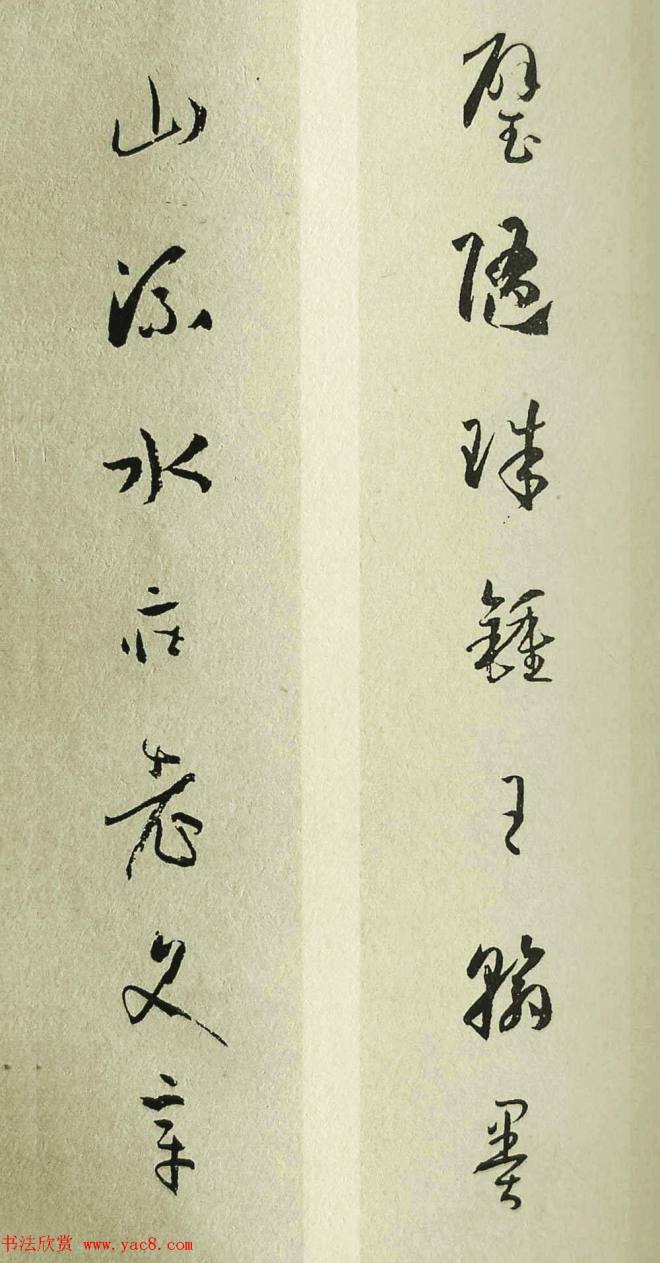 璧隨珠鍾王翰墨
山流水莊老文章
书法欣赏 www.yac8.com